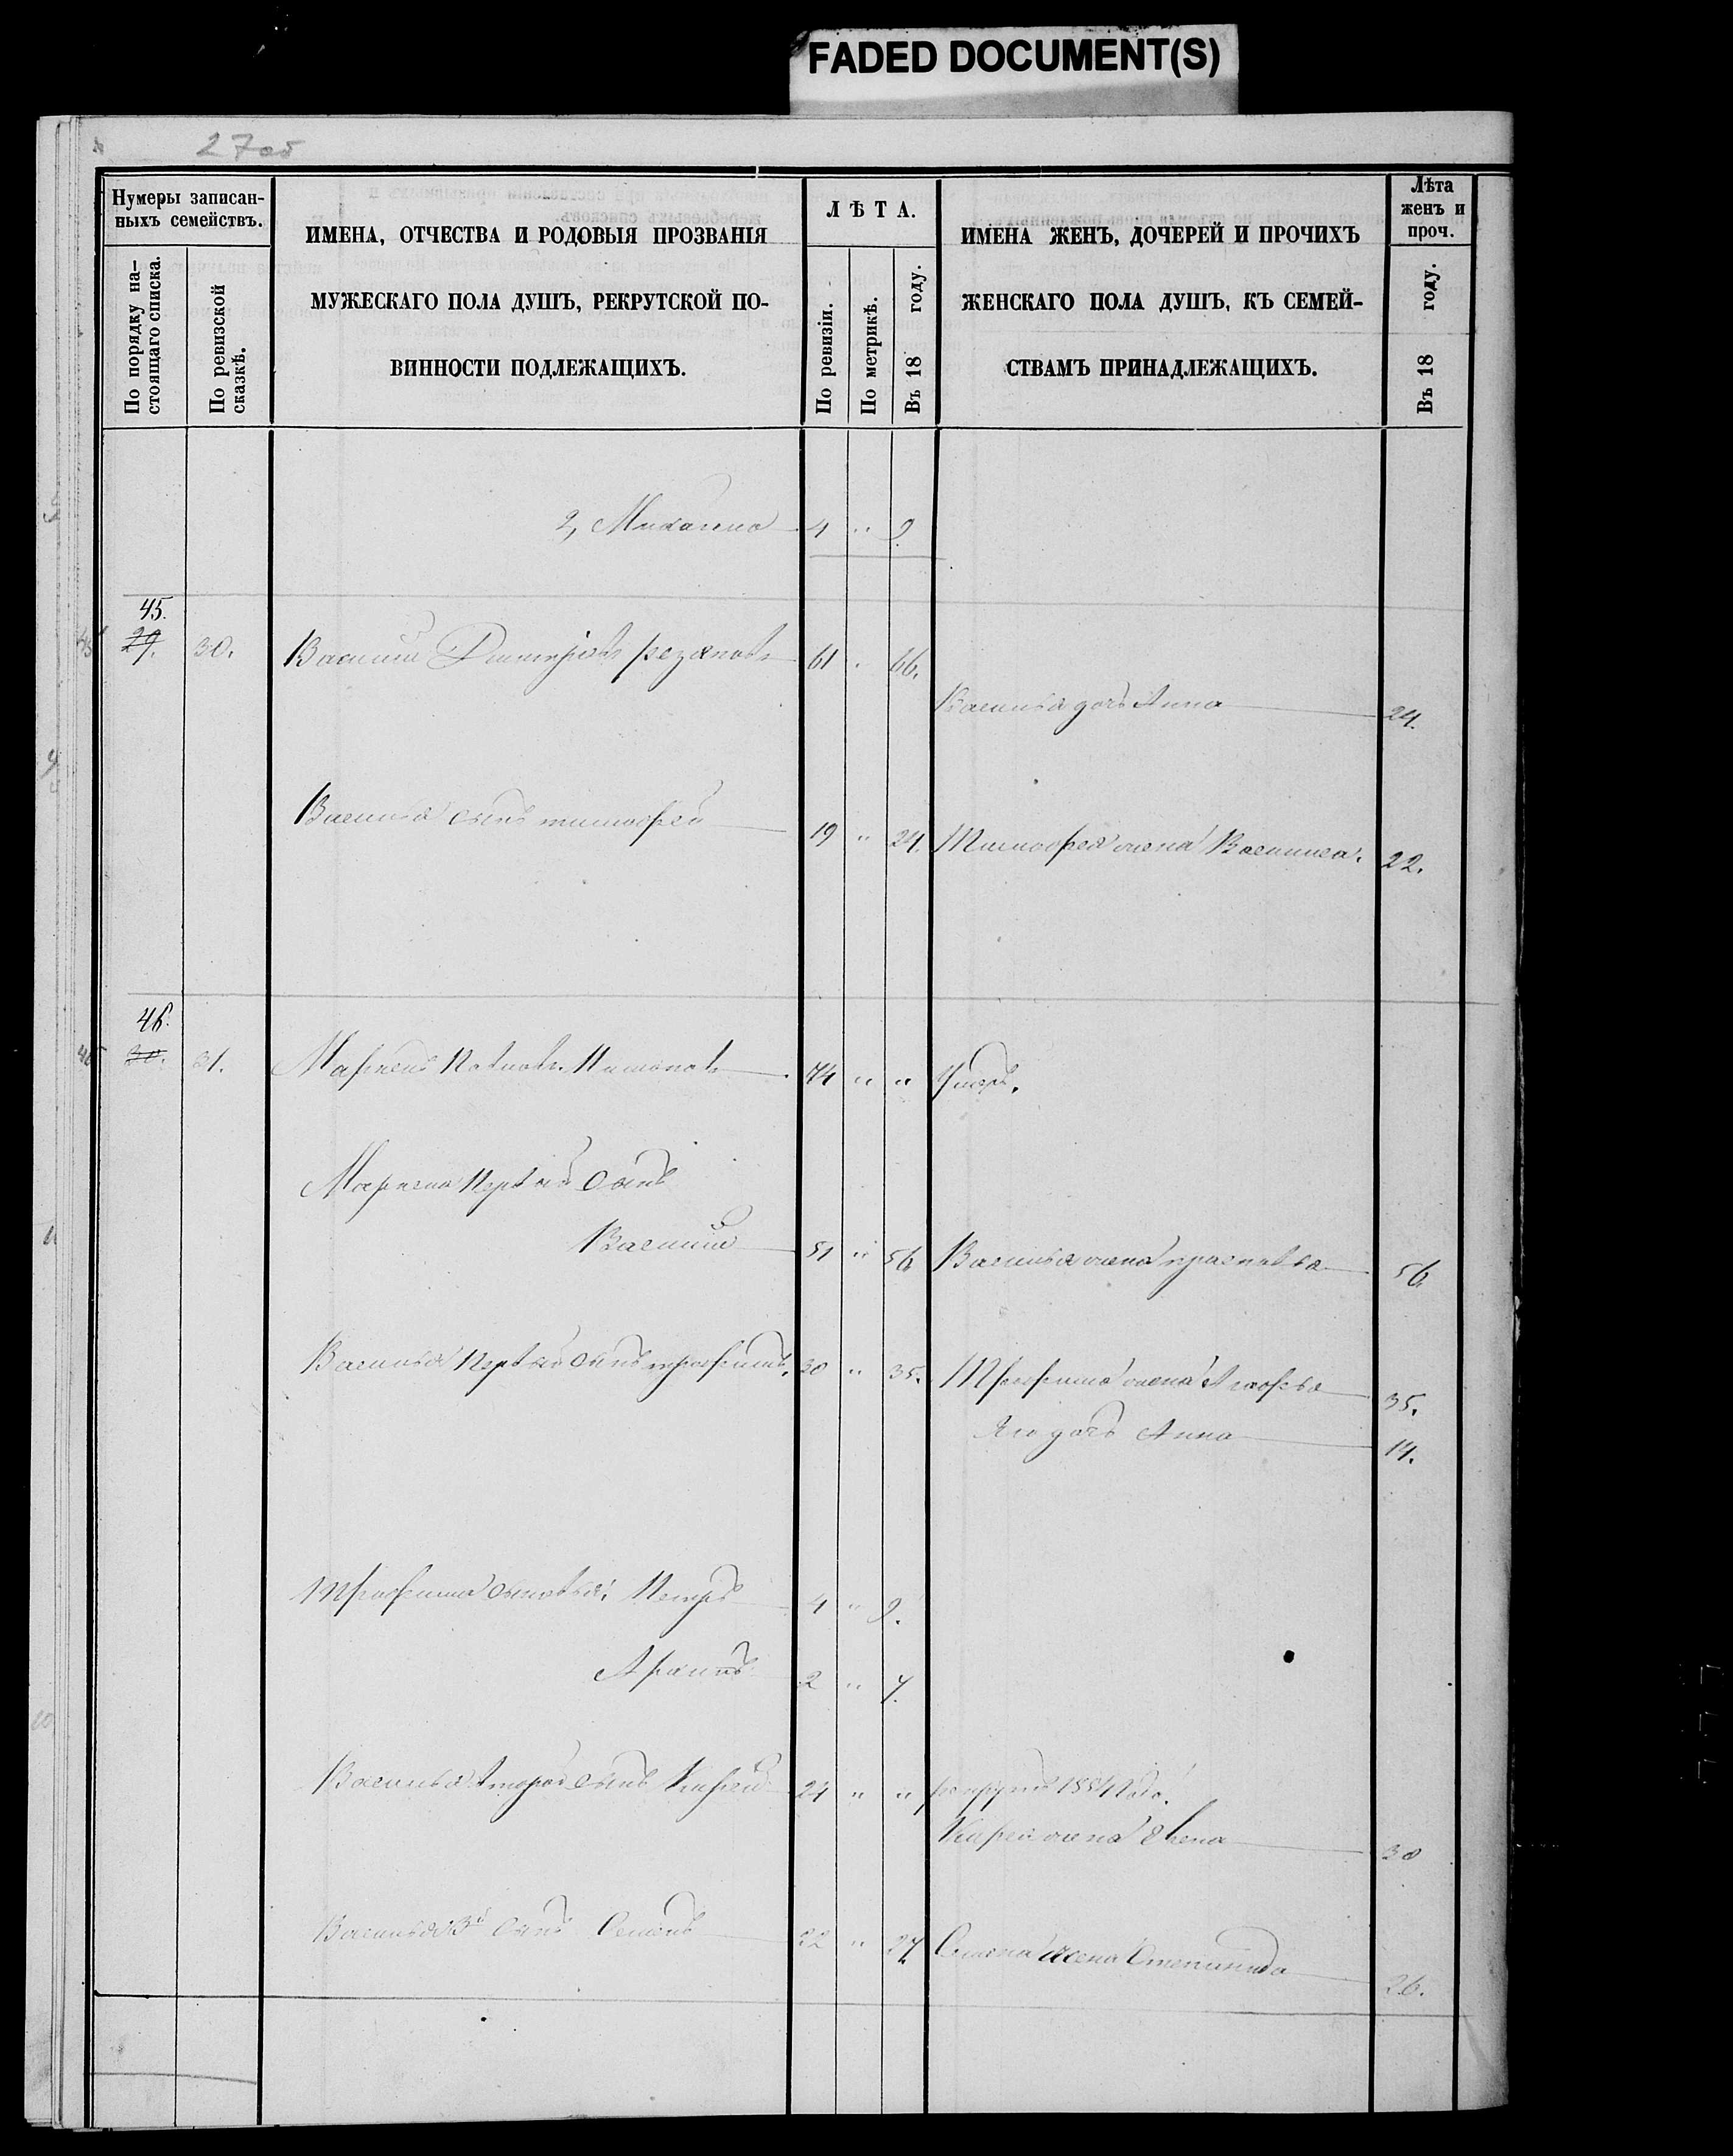 FADED DOCUMENT(S)
27об
Нумеры записан-
ныхъ семействъ.
По порядку на-
стоящаго списка.
По ревизской
сказкѣ.
ИМЕНА, ОТЧЕСТВА И РОДОВЫЯ ПРОЗВАНІЯ
МУЖЕСКАГО ПОЛА ДУШЪ, РЕКРУТСКОЙ ПО-
ВИННОСТИ ПОДЛЕЖАЩИХЪ.
ЛѢТА.
По ревизіи.
По метрикѣ.
Въ 18 году.
ИМЕНА ЖЕНЪ, ДОЧЕРЕЙ И ПРОЧИХЪ
ЖЕНСКАГО ПОЛА ДУШЪ, КЪ СЕМЕЙ-
СТВАМЪ ПРИНАДЛЕЖАЩИХЪ.
Лѣта
женъ и
проч.
Въ 18 году.
2, Михаила 4 " 9.
45.
29. 30. Василий Дмитріевъ резановъ 61 . 66.
Василья дочь Анна 24.
Василья сынъ тимофей 19 " 24. Тимофея жена Василиса. 22.
46.
30. 31. 74 " " Умеръ.
Первый Сынъ
Василий 51 " 56 Василья жена прасковья 56
Василья Первый Сынъ трофимъ. 30 " 35. Трофима жена 35.
Его дочь Анна 14.
Трофима сыновья: Петръ 4 " 9.
2 " 7.
Василья второй Сынъ 24 " " рекрутъ 1854 года.
жена Елена 30
Василья 3й Сынъ Семенъ 22 " 27 Семена жена Степанида 26.